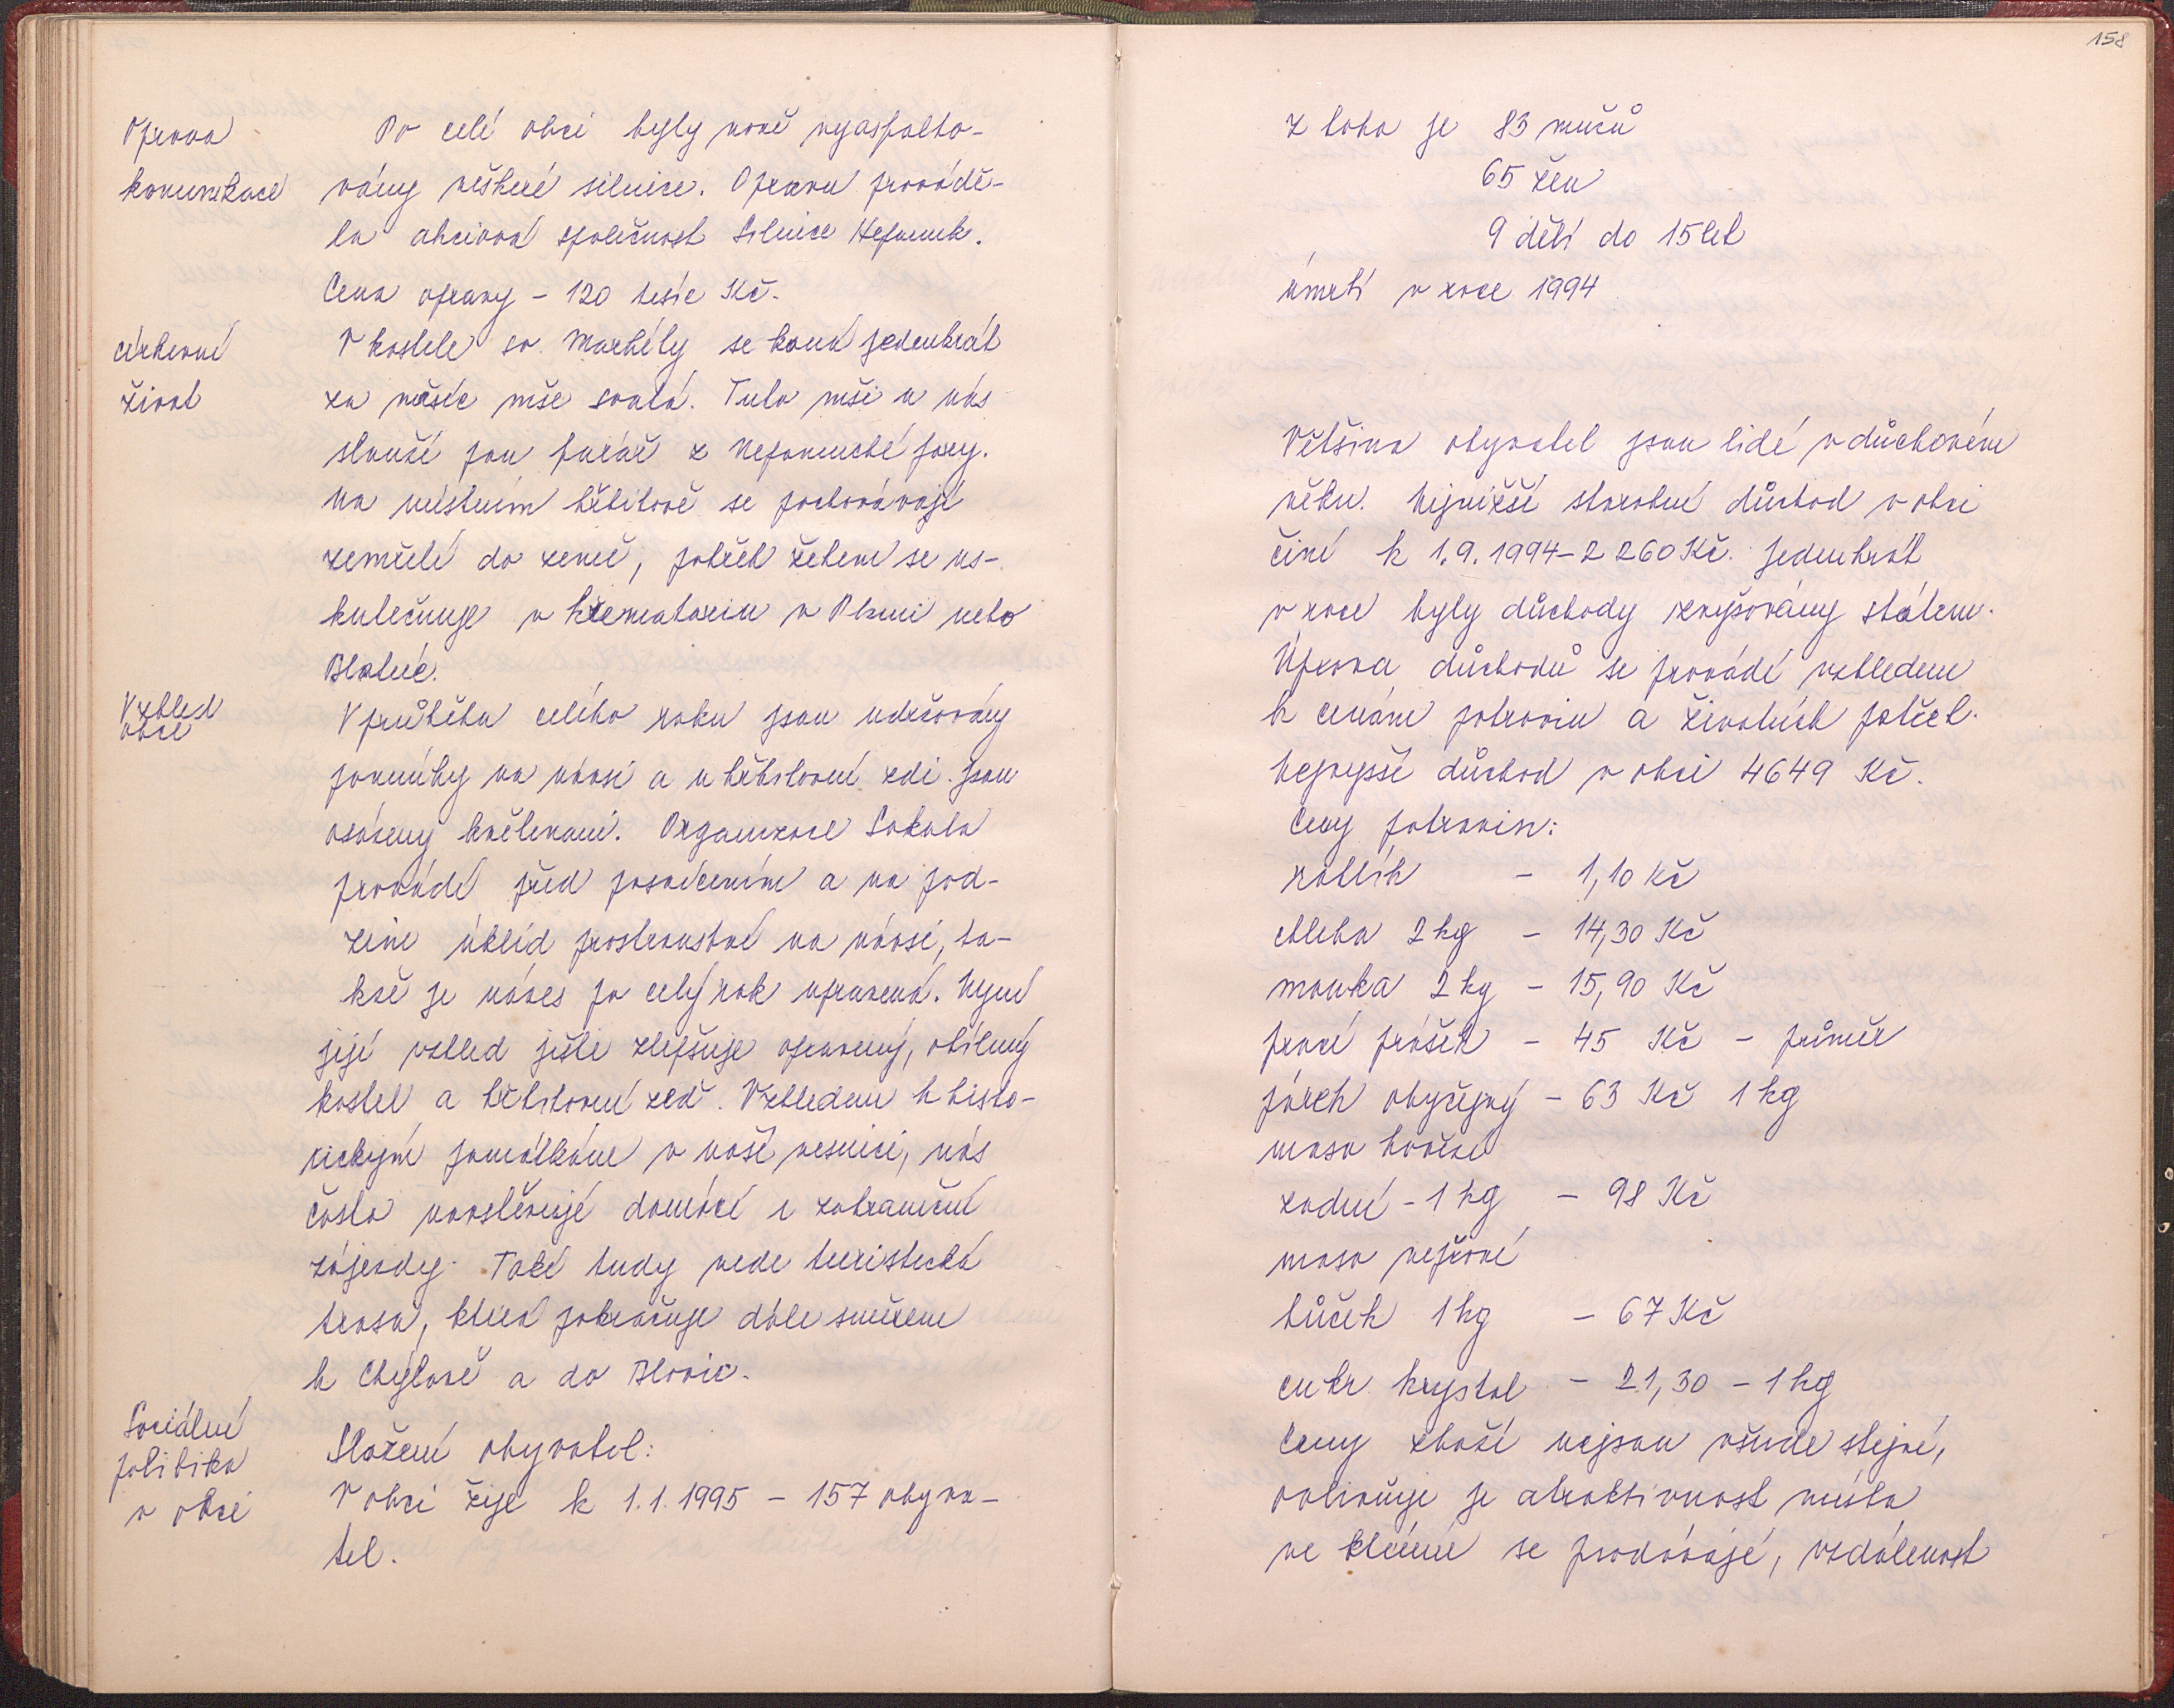 Oprava
komunikace
Po celé obci byly nově vyasfalto-
vány veškeré silnice. Opravu provádě-
la akciová společnost Silnice Nepomuk.
Cena opravy - 120 tisíc Kč.
církevní
život
V kostele sv. Markéty se koná jedenkrát
za měsíc mše svatá. Tuto mši u nás
slouží pan farář z Nepomucké fary.
Na místním hřbitově se pochovávají
zemřelí do země, pohřeb žehem se us-
kutečnuje v krematoriu v Plzni nebo
Blatné.
Vzhled
obce
V průběhu celého roku jsou udržovány
pomníky na návsi a u hřbitovní zdi. Jsou
osázeny květinami. Organizace Sokola
provádí před posvícením a na pod-
zim úklid prostranství na návsi, ta-
kže je náves po celý rok upravená. Nyní
její vzhled ještě zlepšuje opravený, obílený
kostel a hřbitovní zeď. Vzhledem k histo-
rickým památkám v naší vesnici, nás
často navštěvují domácí i zahraniční
zájezdy. Také tudy vede turistická
trasa, která pokračuje dále směrem
k Chýlavě a do Blovic.
Sociální
politika
v obci
Složení obyvatel:
V obci žije k 1.1.1995 - 157 obyva-
tel.
158
z toho je 83 mužů
65 žen
9 dětí do 15 let
úmrtí v roce 1994
Většina obyvatel jsou lidé v důchovém
věku. Nejnižší starobní důchod v obci
činí k 1.9.1994 - 2 260 Kč. Jedenkrát
v roce byly důchody zvyšovány státem.
Úprava důchodů se provádí vzhledem
k cenám potravin a životních potřeb.
Nejvyšší důchod v obci 4649 Kč.
Ceny potravin:
rohlík - 1,10 Kč
chleba 2 kg - 14,30 Kč
mouka 2 kg - 15,90 Kč
prací prášek - 45 Kč - průměr
párek obyčejný - 63 Kč 1 kg
maso hovězí
zadní - 1 kg - 98 Kč
maso vepřové
bůček 1 kg - 67 Kč
cukr krystal - 21,30 - 1 kg
Ceny zboží nejsou všude stejné,
ovlivňuje je atraktivnost místa
ve kterém se prodávají, vzdálenost